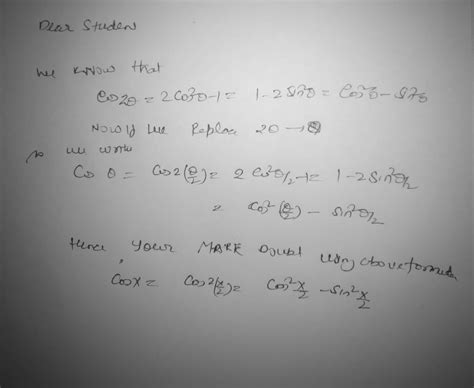 Dear Student
we know that
Cos2θ = 2Cos²θ-1 = 1-2Sin²θ = Cos²θ - Sin²θ
Now if we Replace 2θ → θ
so we write
Cos θ = Cos2(θ/2) = 2Cos²θ/2-1 = 1-2Sin²θ/2
= Cos²(θ/2) - Sin²θ/2
Hence, your MARK Doubt using above formula
Cosx = Cos2(x/2) = Cos²x/2 - Sin²x/2